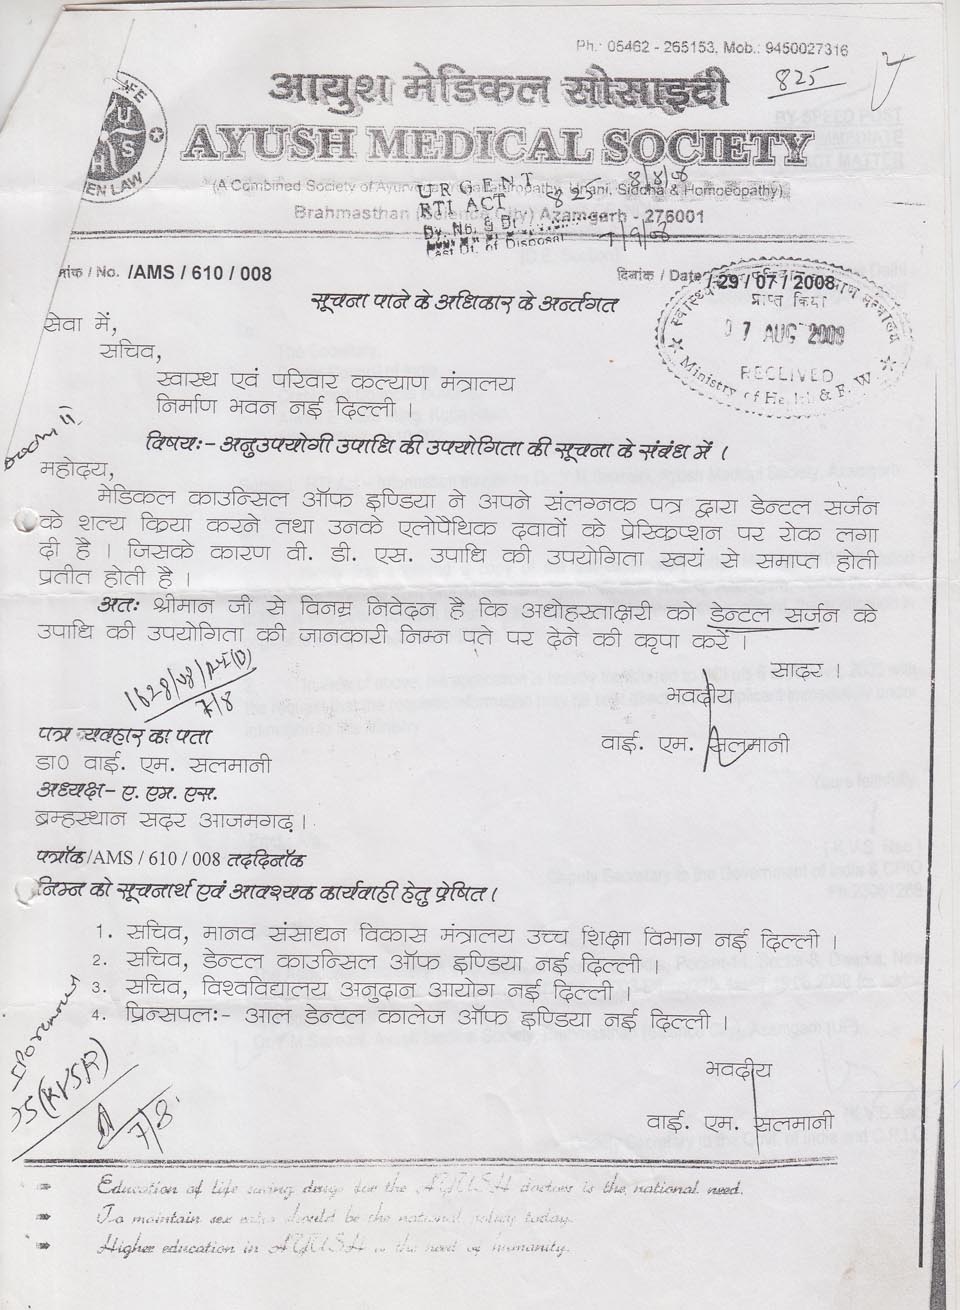 Ph.: 05462 - 265153, Mob.: 9450027316
825
आयुश मेडिकल सोसाइटी
AYUSH MEDICAL SOCIETY
(A Combined Society of Ayurveda, Naturopathy, Unani, Siddha & Homoeopathy)
Brahmasthan (Science City) Azamgarh - 276001
LIFE
EN LAW
URGENT
RTI ACT 825 8/8/08
Dy. No. & Dt.
Last Dt. of Disposal 7/9/08
मांक / No. /AMS / 610 / 008
दिनांक / Date / 29 / 07 / 2008
सूचना पाने के अधिकार के अर्न्तगत
प्राप्त किया
07 AUG 2008
RECEIVED
Ministry of Health & F. W.
सेवा में,
सचिव,
स्वास्थ एवं परिवार कल्याण मंत्रालय
निर्माण भवन नई दिल्ली।
विषयः- अनुउपयोगी उपाधि की उपयोगिता की सूचना के संबंध में।
महोदय,
मेडिकल काउन्सिल ऑफ इण्डिया ने अपने संलग्नक पत्र द्वारा डेन्टल सर्जन
के शल्य क्रिया करने तथा उनके एलोपैथिक दवावों के प्रेस्क्रिप्शन पर रोक लगा
दी है। जिसके कारण वी. डी. एस. उपाधि की उपयोगिता स्वयं से समाप्त होती
प्रतीत होती है।
अतः श्रीमान जी से विनम्र निवेदन है कि अधोहस्ताक्षरी को डेन्टल सर्जन के
उपाधि की उपयोगिता की जानकारी निम्न पते पर देने की कृपा करें।
सादर।
भवदीय
वाई. एम. सलमानी
7/8
पत्र व्यवहार का पता
डा0 वाई. एम. सलमानी
अध्यक्ष- ए. एम. एस.
ब्रम्हस्थान सदर आजमगढ़।
पत्रॉक/AMS / 610 / 008 तद्दिनॉक
निम्न को सूचनार्थ एवं आवश्यक कार्यवाही हेतु प्रेषित।
1. सचिव, मानव संसाधन विकास मंत्रालय उच्च शिक्षा विभाग नई दिल्ली।
2. सचिव, डेन्टल काउन्सिल ऑफ इण्डिया नई दिल्ली।
3. सचिव, विश्वविद्यालय अनुदान आयोग नई दिल्ली।
4. प्रिन्सपलः- आल डेन्टल कालेज ऑफ इण्डिया नई दिल्ली।
7/8
भवदीय
वाई. एम. सलमानी
Education of life saving drugs for the AYUSH doctors is the national need.
To maintain sex ratio should be the national policy today.
Higher education in AYUSH is the need of humanity.